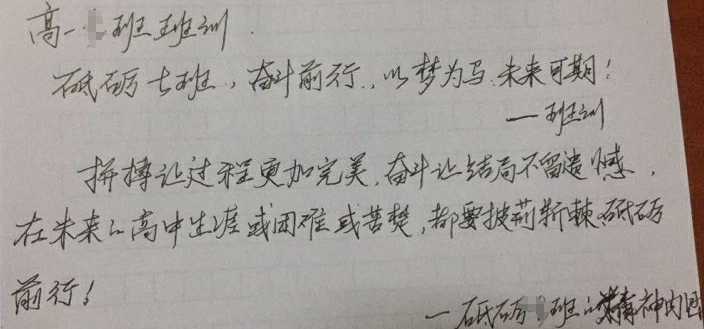 高一 班班训.
砥砺七班,奋斗前行,以梦为马,未来可期!
一班训
拼搏让过程更加完美,奋斗让结局不留遗憾,
在未来的高中生涯或困难或苦楚,都要披荆斩棘,砥砺
前行!
一砥砺 班的 精神内